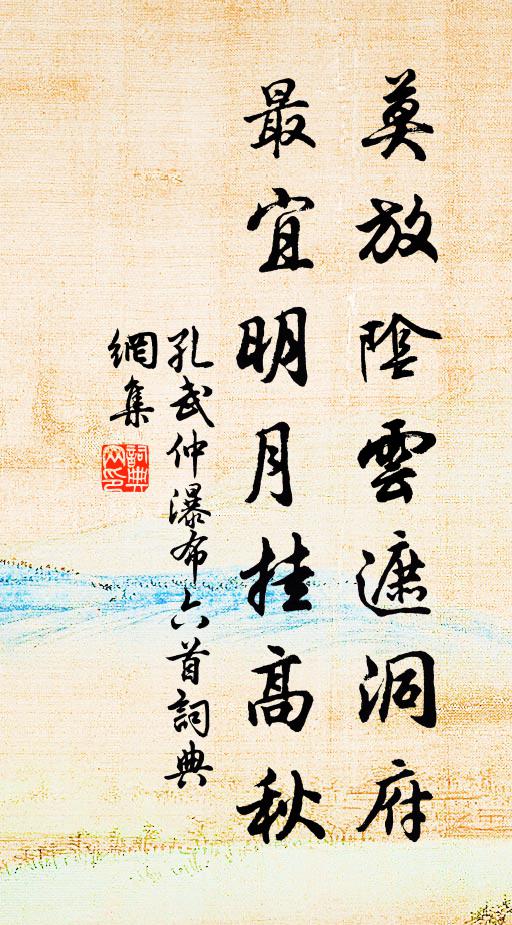 莫放陰雲遮洞府
最宜明月挂高秋
孔武仲瀑布六首詞典
網集
詞典
网印